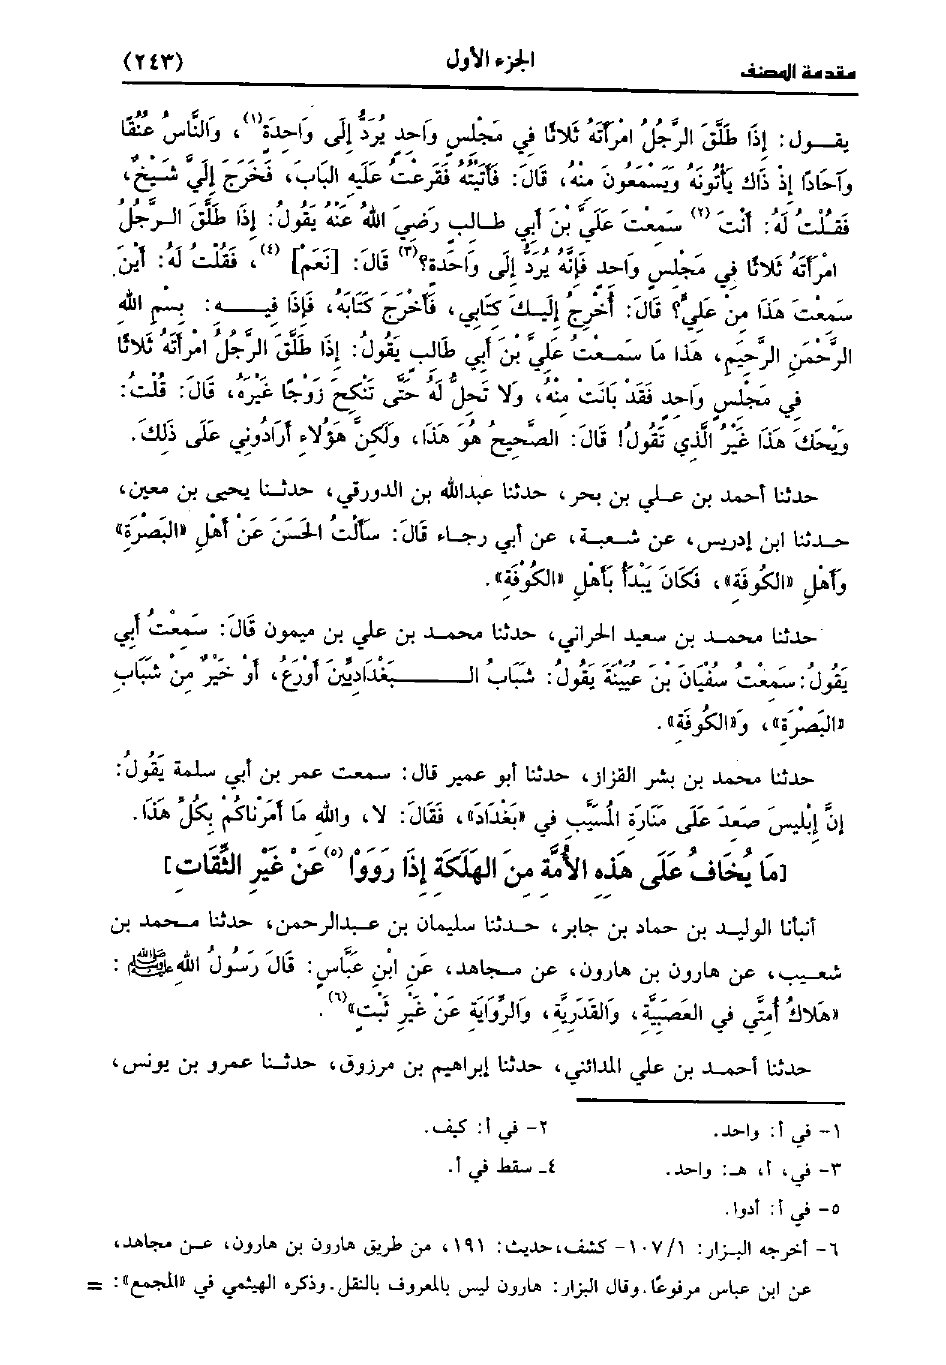 مقدمة المصنف الجزء الأول (٢٤٣)
يقـــول: إِذَا طَلَّقَ الرَّجُلُ امْرَأَتَهُ ثَلاثًا فِي مَجْلِسٍ وَاحِدٍ يُرَدُّ إِلَى وَاحِدَةٍ(١)، وَالنَّاسُ عُنُقًا
وَآحَادًا إِذْ ذَاكَ يَأْتُونَهُ وَيَسْمَعُونَ مِنْهُ، قَالَ: فَأَتَيْتُهُ فَقَرَعْتُ عَلَيهِ البَابَ، فَخَرَجَ إِلَيَّ شَيْخٌ،
فَقُلْتُ لَهُ: أَنْتَ (٢) سَمِعْتَ عَلَيَّ بْنَ أَبِي طَالِبٍ رَضِيَ اللهُ عَنْهُ يَقُولُ: إِذَا طَلَّقَ الـرَّجُلُ
امْرَأَتَهُ ثَلاثًا فِي مَجْلِسٍ وَاحِدٍ فَإِنَّهُ يُرَدُّ إِلَى وَاحَدَة؟(٣) قَالَ: [نَعَمْ] (٤)، فَقُلْتُ لَهُ: أَيْنَ
سَمِعْتَ هَذَا مِنْ عَلِيٍّ؟ قَالَ: أُخْرِجُ إِلَيْكَ كِتَابِي، فَأَخْرَجَ كِتَابَهُ، فَإِذَا فِيـــــهِ: بِسْمِ اللهِ
الرَّحْمَنِ الرَّحِيمِ، هَذَا مَا سَمِـعْتُ عَلِيَّ بْنَ أَبِي طَالِبٍ يَقُولُ: إِذَا طَلَّقَ الرَّجُلُ امْرَأَتَهُ ثَلاثًا
فِي مَجْلِسٍ وَاحِدٍ فَقَدْ بَانَتْ مِنْهُ، وَلا تَحِلُّ لَهُ حَتَّى تَنْكِحَ زَوْجًا غَيْرَهُ، قَالَ: قُلْتُ:
وَيْحَكَ هَذَا غَيْرُ الَّذِي تَقُولُ! قَالَ: الصَّحِيحُ هُوَ هَذَا، وَلَكِنَّ هَؤُلاءِ أَرَادُونِي عَلَى ذَلِكَ.
حدثنا أحمد بن عـلي بن بحر، حدثنا عبدالله بن الدورقي، حدثـنا يحيى بن معين،
حـدثنا ابن إدريس، عن شـعبة، عن أبي رجـاء قَالَ: سَأَلْتُ الْحَسَنَ عَنْ أَهْلِ «البَصْرَةِ»
وَأَهْلِ «الكُوفَةِ»، فَكَانَ يَبْدَأُ بَأَهْلِ «الكُوْفَةِ».
حدثنا محمـد بن سعيد الحراني، حدثنا محمـد بن علي بن ميمون قَالَ: سَمِعْتُ أَبِي
يَقُولُ: سَمِعْتُ سُفْيَانَ بْنَ عُيَيْنَةَ يَقُولُ: شَبَابُ الــــــــبَغْدَادِيِّينَ أَوْرَعُ، أَوْ خَيْرٌ مِنْ شَبَابِ
«البَصْرَةِ»، وَ«الكُوفَةِ».
حدثنا محمد بن بشر القزاز، حدثنا أبو عمير قال: سمعت عمر بن أبي سلمة يَقُولُ:
إِنَّ إِبْلِيسَ صَعِدَ عَلَى مَنَارَةِ الْمُسَيَّبِ فِي «بَغْدَادَ»، فَقَالَ: لا، وَاللهِ مَا أَمَرْنَاكُمْ بِكُلِّ هَذَا.
[مَا يُخَافُ عَلَى هَذِهِ الأُمَّةِ مِنَ الهَلَكَةِ إِذَا رَوَوْا (٥)عَنْ غَيْرِ الثِّقَاتِ]
أنبأنا الوليـد بن حماد بن جابر، حـدثنا سليمان بن عـبدالرحمن، حدثنا محمد بن
شعيب، عن هارون بن هارون، عن مـجاهد، عَنِ ابْنِ عَبَّاسٍ: قَالَ رَسُولُ اللهِ ﷺ:
«هَلاكُ أُمَّتِي فِي العَصَبِيَّةِ، وَالقَدَرِيَّةِ، وَالرِّوَايَةِ عَنْ غَيْرِ ثَبْتٍ»(٦).
حدثنا أحمـد بن علي المدائني، حدثنا إبراهيم بن مرزوق، حدثـنا عمرو بن يونس،
١- في أ: واحد. ٢- في أ: كيف.
٣- في، أ، هـ: واحد. ٤- سقط في أ.
٥- في أ: أدوا.
٦- أخرجه البـزار: ١/ ١٠٧- كشف، حديث: ١٩١، من طريق هارون بن هارون، عـن مجاهد،
عن ابن عباس مرفوعًا. وقال البزار: هارون ليس بالمعروف بالنقل. وذكره الهيثمي في «المجمع»: =